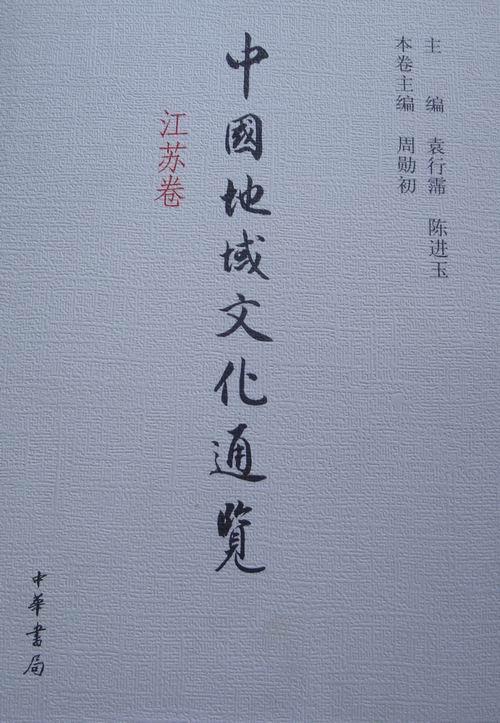 主 编 袁行霈 陈进玉
本卷主编 周勋初
中國地域文化通覽
江苏卷
中華書局